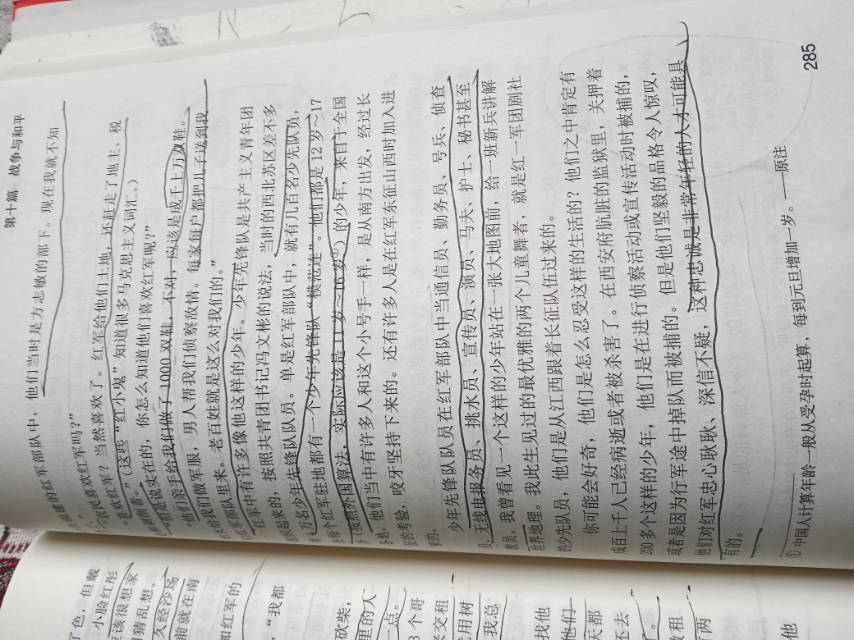 第十篇 战争与和平
建的红军部队中，他们当时是方志敏的部下。现在我就不知
农民喜欢红军吗？”
喜欢红军？当然喜欢了。红军给他们土地，还赶走了地主、税
”（这些“红小鬼”知道很多马克思主义词汇。）
是说实在的，你怎么知道他们喜欢红军呢？”
他们亲手给我们做了1000双鞋，不对，应该是成千上万双鞋。
给我们做军服，男人帮我们侦察敌情。每家每户都把儿子送到我
军部队里来。老百姓就是这么对我们的。”
红军中有许多像他这样的少年。少年先锋队是共产主义青年团
起来的，按照共青团书记冯文彬的说法，当时的西北苏区差不多
万名少年先锋队队员。单是红军部队中，就有几百名少先队员，
个红军驻地都有一个少年先锋队“模范连”。他们都是12岁～17
（按照外国算法，实际应该是11岁～16岁①）的少年，来自于全国
他们当中有许多人和这个小号手一样，是从南方出发，经过长
的考验，咬牙坚持下来的。还有许多人是在红军东征山西时加入进
来的。
少年先锋队队员在红军部队中当通信员、勤务员、号兵、侦查
员、无线电报务员、挑水员、宣传员、演员、马夫、护士、秘书甚至
教员，我曾看见一个这样的少年站在一张大地图前，给一班新兵讲解
世界地理。我此生见过的最优雅的两个儿童舞者，就是红一军团剧社
的少先队员，他们是从江西跟着长征队伍过来的。
你可能会好奇，他们是怎么忍受这样的生活的？他们之中肯定有
成百上千人已经病逝或者被杀害了。在西安府肮脏的监狱里，关押着
200多个这样的少年，他们是在进行侦察活动或宣传活动时被捕的，
或者是因为行军途中掉队而被捕的。但是他们坚毅的品格令人惊叹，
他们对红军忠心耿耿、深信不疑，这种忠诚是非常年轻的人才可能具
有的。
① 中国人计算年龄一般从受孕时起算，每到元旦增加一岁。——原注
285
了色，但嘴
小脸红彤
应该很想家
猜乱想。
久经沙场
前就在南
和红军的
，“我都
砍柴，
里的人
一点。
3个哥
米交租
用树
我总
找他
他们
天都
还去
租
两
他